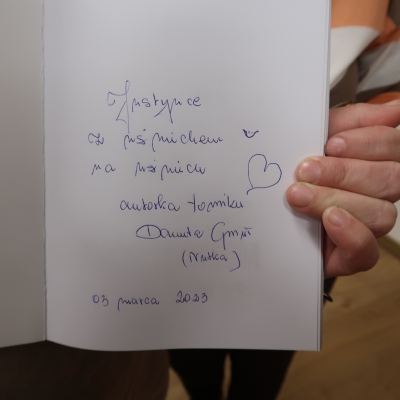 Justynce
z uśmiechem
na uśmiech
autorka tomiku
Danuta
(Nutka)
03 marca 2023